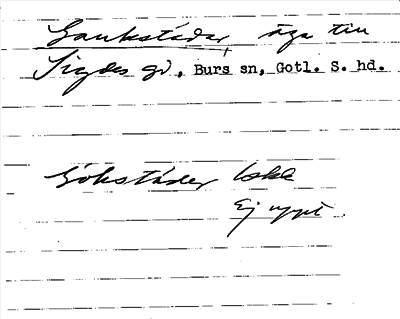 Gaukstäder, äga till
Sigdes gd, Burs sn, Gotl. S. hd.
Gökstäder
Ej uppt.